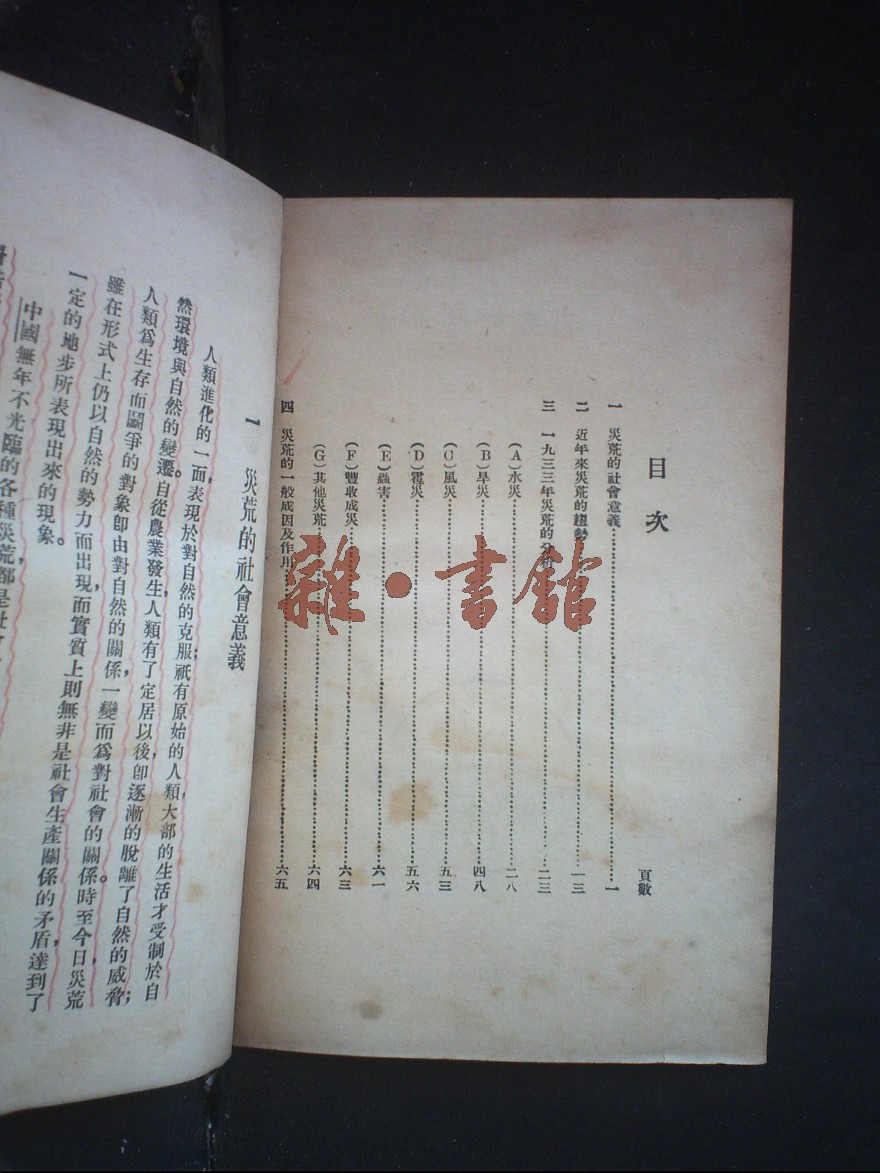 目次
頁數
一 災荒的社會意義………一
二 近年來災荒的趨勢………一三
三 一九三三年災荒的分析………二三
(A)水災………二八
(B)旱災………四八
(C)風災………五三
(D)雹災………五六
(E)蟲害………六一
(F)豐收成災………六三
(G)其他災荒………六四
四 災荒的一般成因及作用………六五
雜·書館
一 災荒的社會意義
人類進化的一面表現於對自然的克服祇有原始的人類,大部的生活才受制於自
然環境與自然的變遷。自從農業發生,人類有了定居以後,卽逐漸的脫離了自然的威脅;
人類爲生存而鬪爭的對象卽由對自然的關係,一變而爲對社會的關係。時至今日,災荒
雖在形式上仍以自然的勢力而出現,而實質上則無非是社會生產關係的矛盾,達到了
一定的地步所表現出來的現象。
中國無年不光臨的各種災荒,都是社會